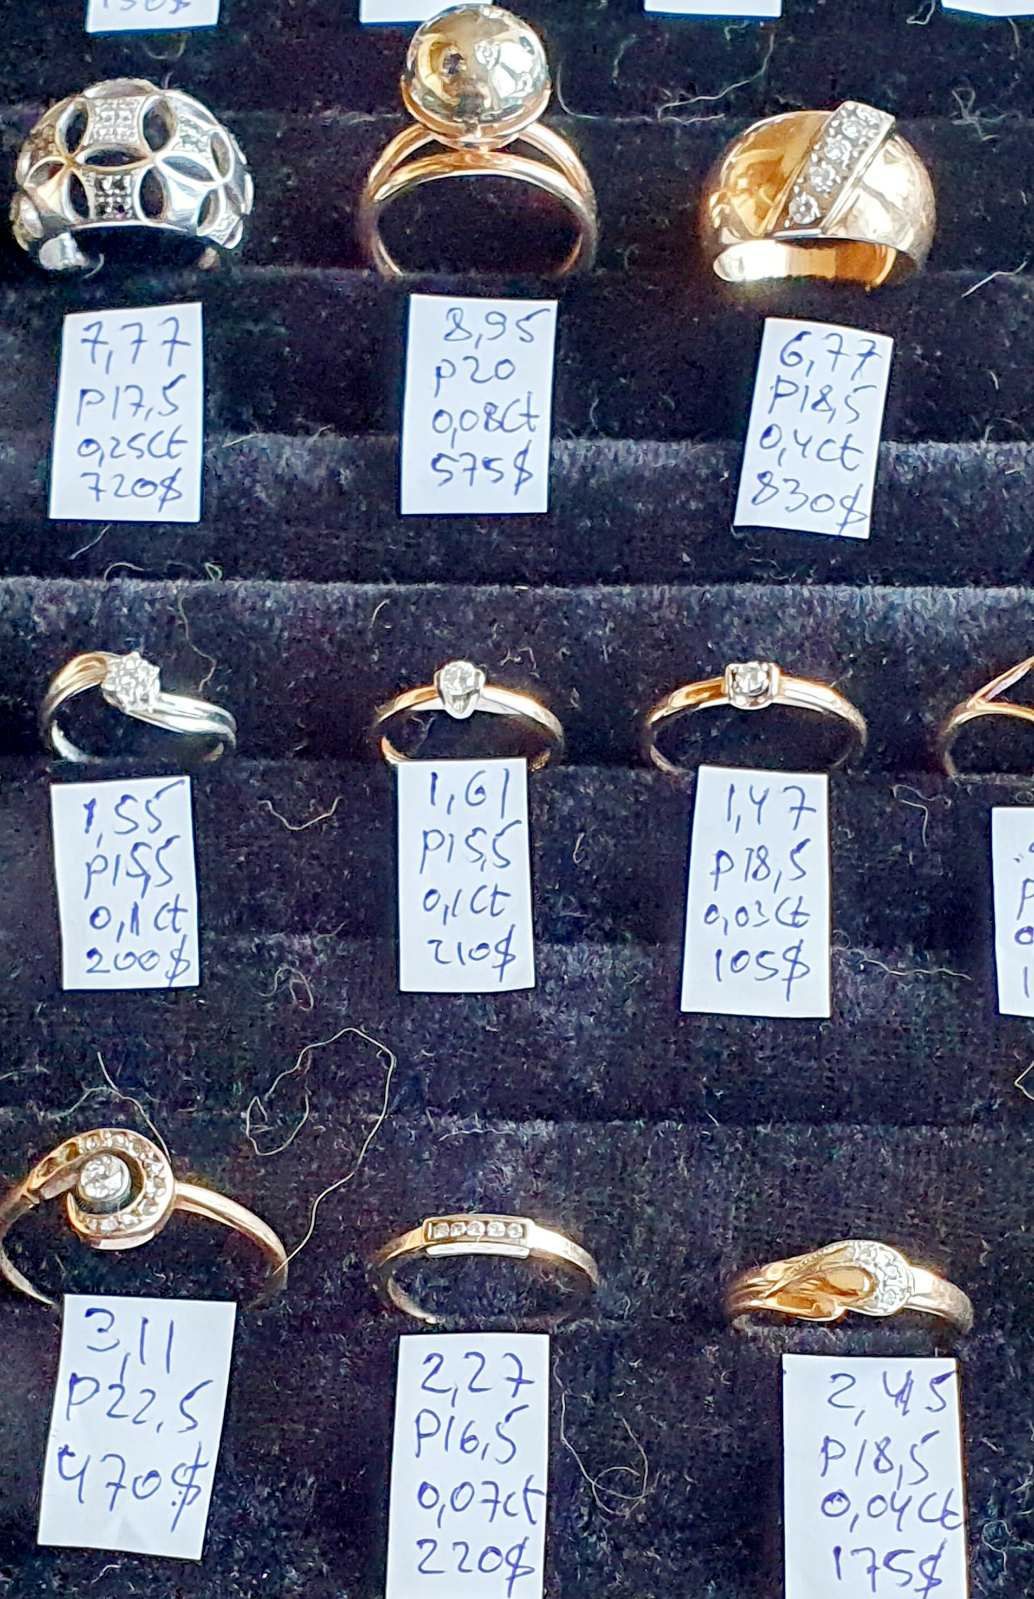 7,77
р17,5
0,25ct
720$
8,95
р20
0,08ct
575$
6,77
р18,5
0,4ct
830$
1,55
р15,5
0,1ct
200$
1,61
р15,5
0,1ct
210$
1,47
р18,5
0,03ct
105$
3,11
р22,5
470$
2,27
р16,5
0,07ct
220$
2,45
р18,5
0,04ct
175$